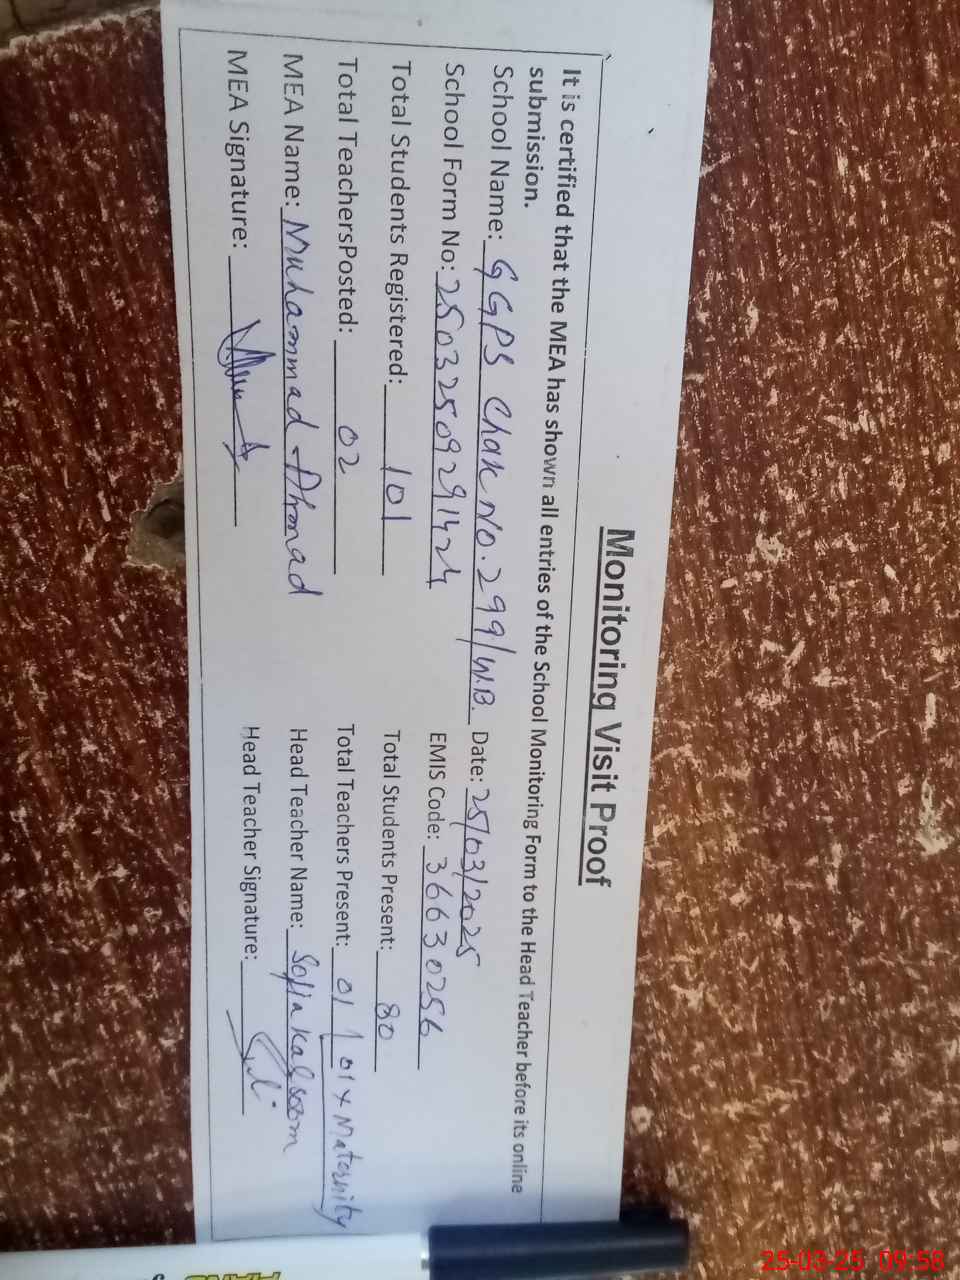 Monitoring Visit Proof
It is certified that the MEA has shown all entries of the School Monitoring Form to the Head Teacher before its online
submission.
School Name: GGPS Chak No. 299/W.B. Date: 25/03/2025
School Form No: 25032509291424 EMIS Code: 36630256
Total Students Registered: 101 Total Students Present: 80
Total TeachersPosted: 02 Total Teachers Present: 01 / 01 x Maternity
MEA Name: Muhammad Ahmad Head Teacher Name: Sofia Kalsoom
MEA Signature: Head Teacher Signature:
25-03-25 09:58